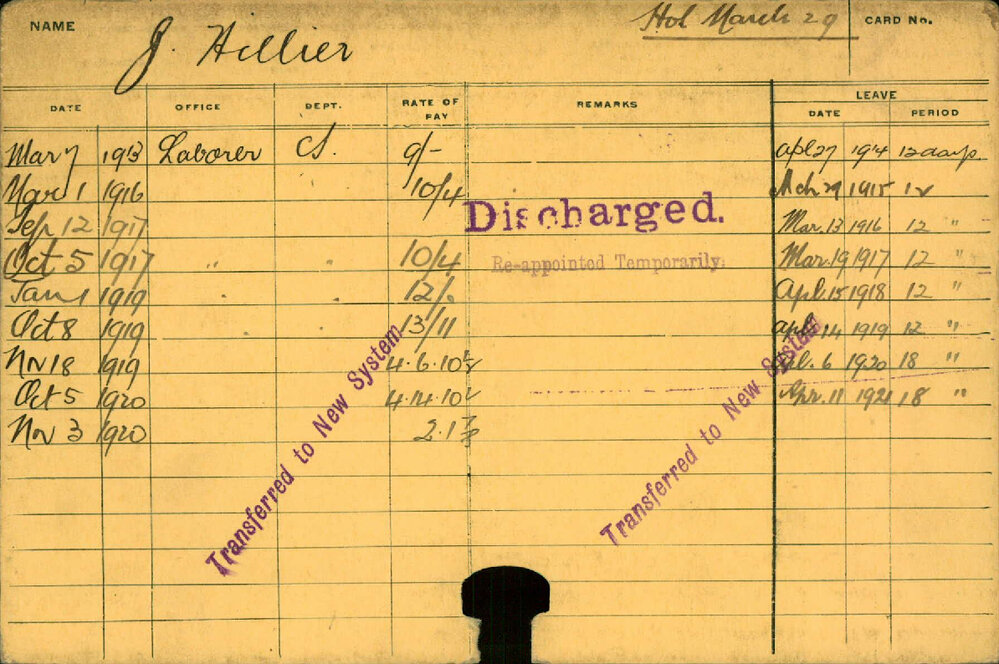 NAME J. Hillier Hol March 29 CARD No.
LEAVE
DATE OFFICE DEPT. RATE OF PAY REMARKS DATE PERIOD
Mar 7 1913 Laborer 9/- apl 27 1914 12 days
1 1916 10/4 Mch 29 1915 12
Discharged.
Sep 12 1917 Mar. 13 1916 12 "
Oct 5 1917 " " 10/4 Re-appointed Temporarily. Mar. 19 1917 12 "
Jan 1 1919 " " 12/. Apl. 15 1918 12 "
Oct 8 1919 " " 13/11 apl 14 1919 12 "
Nov 18 1919 4.6.10½ 6 1920 18 "
Oct 5 1920 4.14.10½ Apr. 11 1921 18 "
Nov 3 1920 2.1⅞
Transferred to New System
Transferred to New System